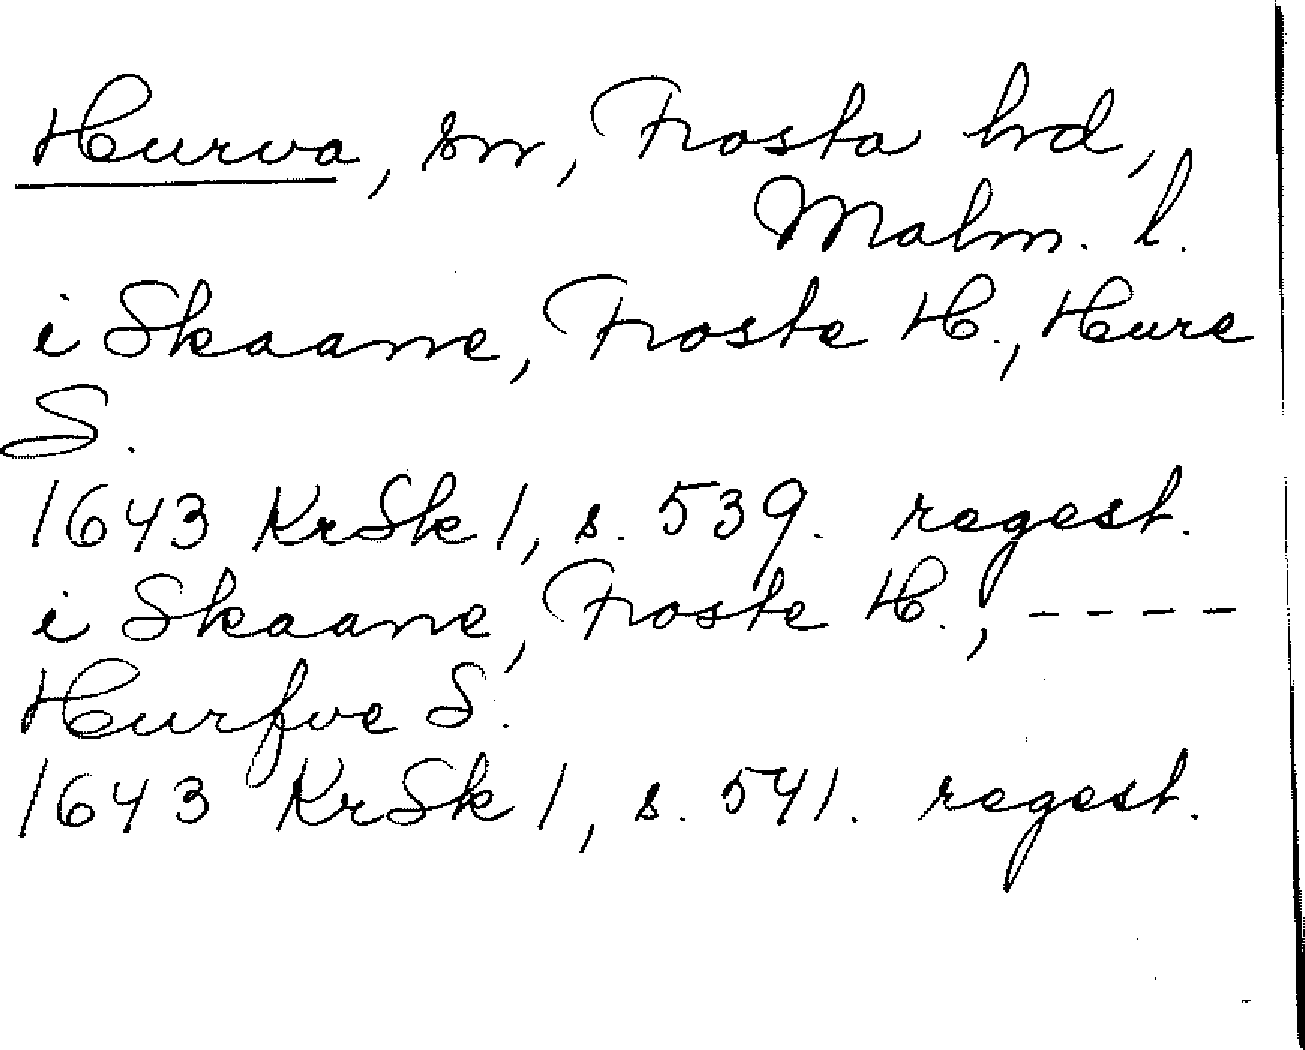 Hurva, sn, Frosta hd,
Malm. l.
i Skaane, Froste H., Hure
S.
1643 KrSk 1, s. 539. regest.
i Skaane, Froste H., ----
Hurfve S.
1643 KrSk 1, s. 541. regest.